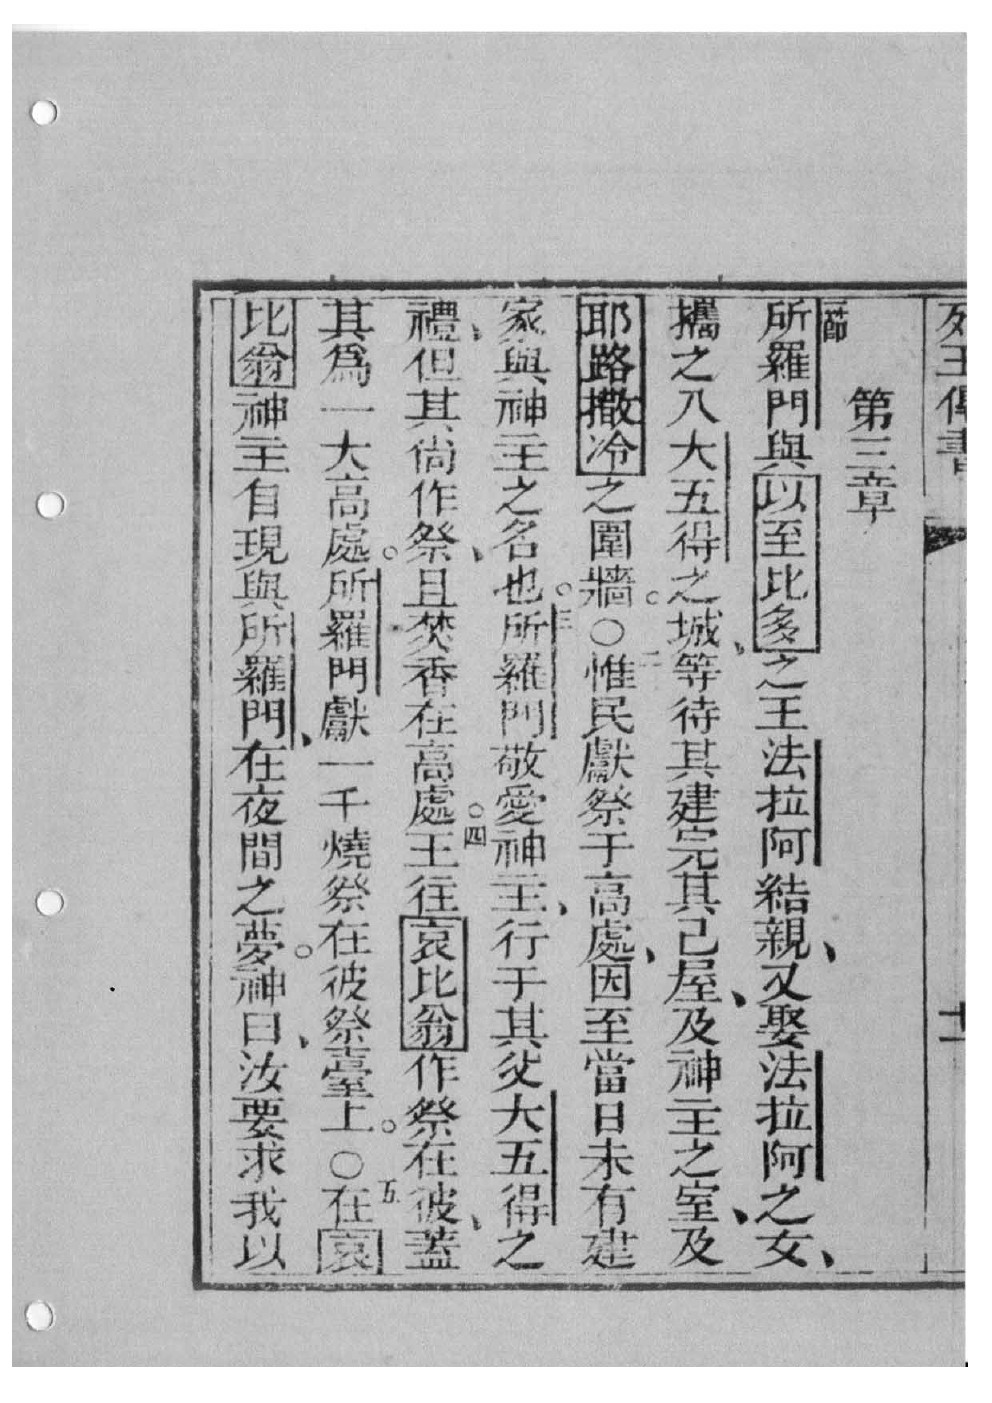 列王傳書
十一
第三章
一節所羅門與以至比多之王法拉阿結親、又娶法拉阿之女、
攜之入大五得之城、等待其建完其己屋、及神主之室、及
耶路撒冷之圍牆。○二惟民獻祭于高處、因至當日未有建
家與神主之名也。三所羅門敬愛神主、行于其父大五得之
禮、但其尚作祭、且焚香在高處。四王往哀比翁作祭在彼、蓋
其爲一大高處。所羅門獻一千燒祭在彼祭臺上。○五在哀
比翁神主自現與所羅門、在夜間之夢。神曰、汝要求我以